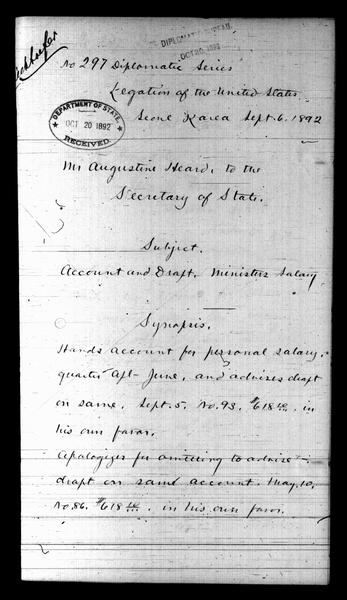 DIPLOMATIC BUREAU,
OCT 20 1892
No 297 Diplomatic Series
Legation of the United States
Seoul Korea Sept. 6. 1892
DEPARTMENT OF STATE,
OCT 20 1892
RECEIVED.
Mr Augustine Heard, to the
Secretary of State.
Subject.
Account and Draft. Ministers Salary
Synopsis.
Hands account for personal salary,
quarter Apl - June, and advises draft
on same, Sept. 5. No. 93. $618 in
his own favor.
Apologizes for omitting to advise
draft on same account. May. 10.
No. 86. $618 in his own favor.